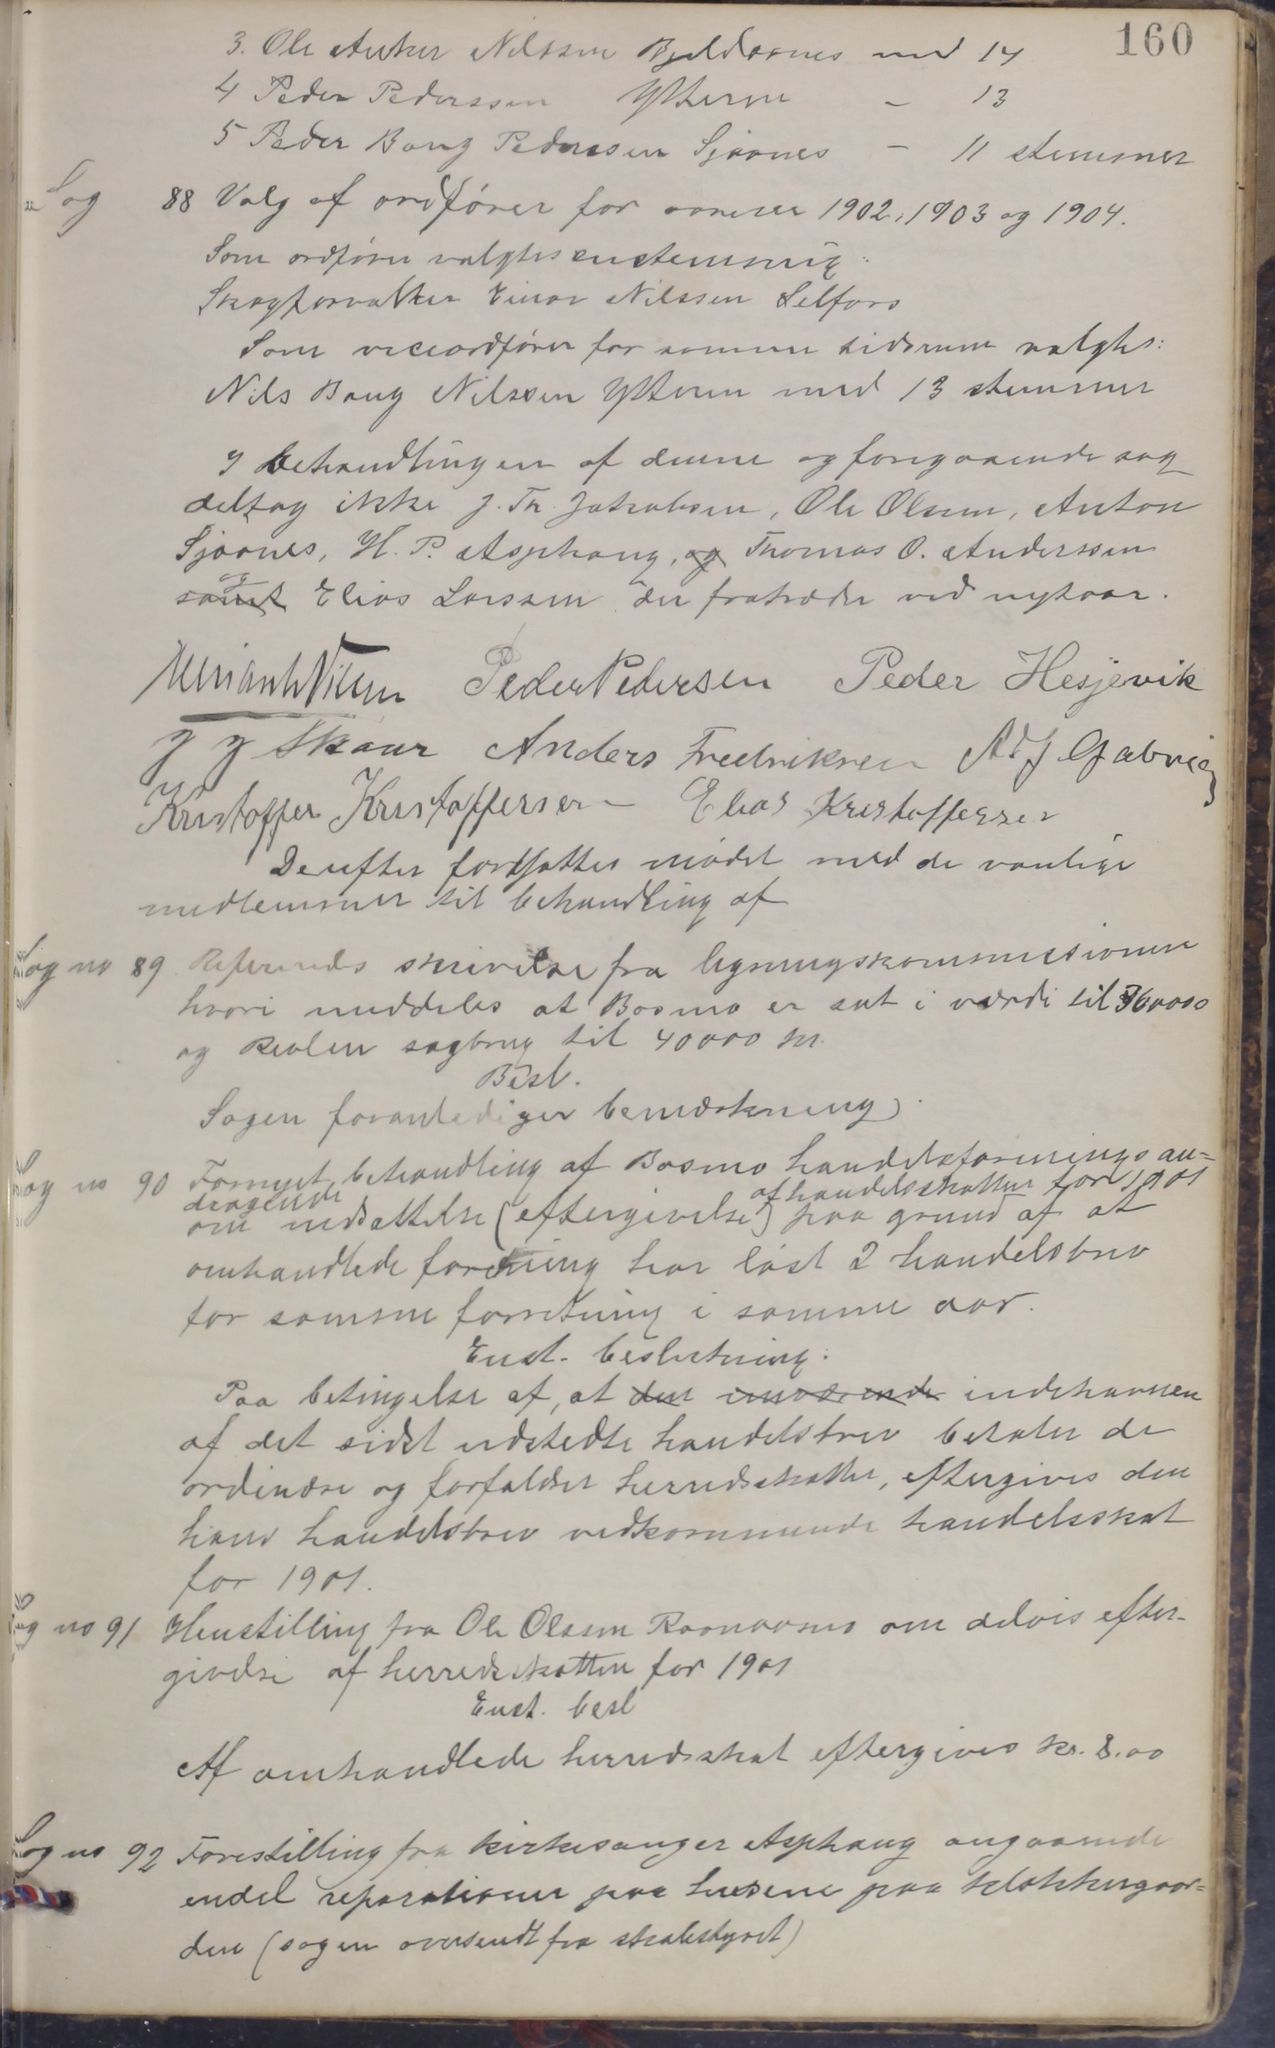 160
3. Ole Anker Nilssen Bjeldaanes med 14
4 Peder Pederssen Ytteren - 13
5 Peder Bang Pederssen Sjaanes - 11 stemmer
Sag 88 Valg af ordfører for aarene 1902, 1903 og 1904.
Som ordfører valgtes enstemmig:
Skogforvalter Einar Nilssen Selfors
Som viceordfører for samme tidsrum valgtes:
Nils Bang Nilssen Ytteren med 13 stemmer
I behandlingen af denne og foregaaende sag
deltog ikke J. Th. Jakobsen, Ole Olsen, Anton
Sjaanes, H. P. Asphaug, og Thomas O. Anderssen
samt og Elias Larssen der fratræder ved nytaar.
Peder Pedersen Peder Hesjevik
J J Skaar Anders Fredriksen Adf Gabriels
Kristoffer Kristoffersen Elias Kristoffersen
Derefter fortsattes mødet med de vanlige
medlemmer til behandling af
Sag no 89 Refereredes skrivelse fra ligningskommissionen
hvori meddeles at Bosmo er sat i værdi til 360000
og Revlen sagbrug til 40000 kr.
Besl.
Sagen foranlediger bemærkning.
Sag no 90 Fornyet behandling af Bosmo handelsforenings an-
dragende om nedsættelse (eftergivelse) af handelsskatten for 1901 paa grund af at
omhandlede forening har løst 2 handelsbrev
for samme forretning i samme aar.
Enst. beslutning:
Paa betingelse af, at den nuværende indehaveren
af det sidst udstedte handelsbrev betaler de
ordinære og forfaldne herredsskatter, eftergives den
hans handelsbrev vedkommende handelsskat
for 1901.
Sag no 91 Henstilling fra Ole Olssen Raanaasmo om delvis efter-
givelse af herredsskatten for 1901
Enst. besl
Af omhandlede herredsskat eftergives kr. 8.00
Sag no 92 Forestilling fra kirkesanger Asphaug angaaende
endel reparationer paa husene paa klokkergaar-
den (sagen oversendt fra skolestyret)